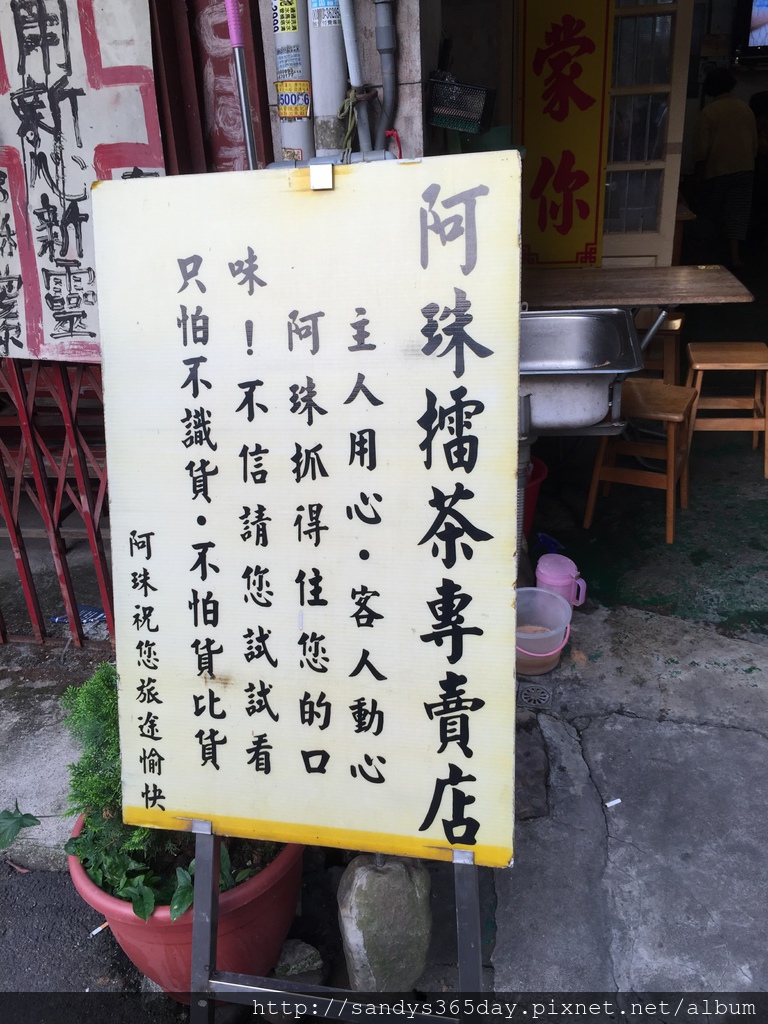 阿珠擂茶專賣店
主人用心・客人動心
阿珠抓得住您的口
味！不信請您試試看
只怕不識貨・不怕貨比貨
阿珠祝您旅途愉快
蒙你
開新心新靈
http://sandys365day.pixnet.net/album